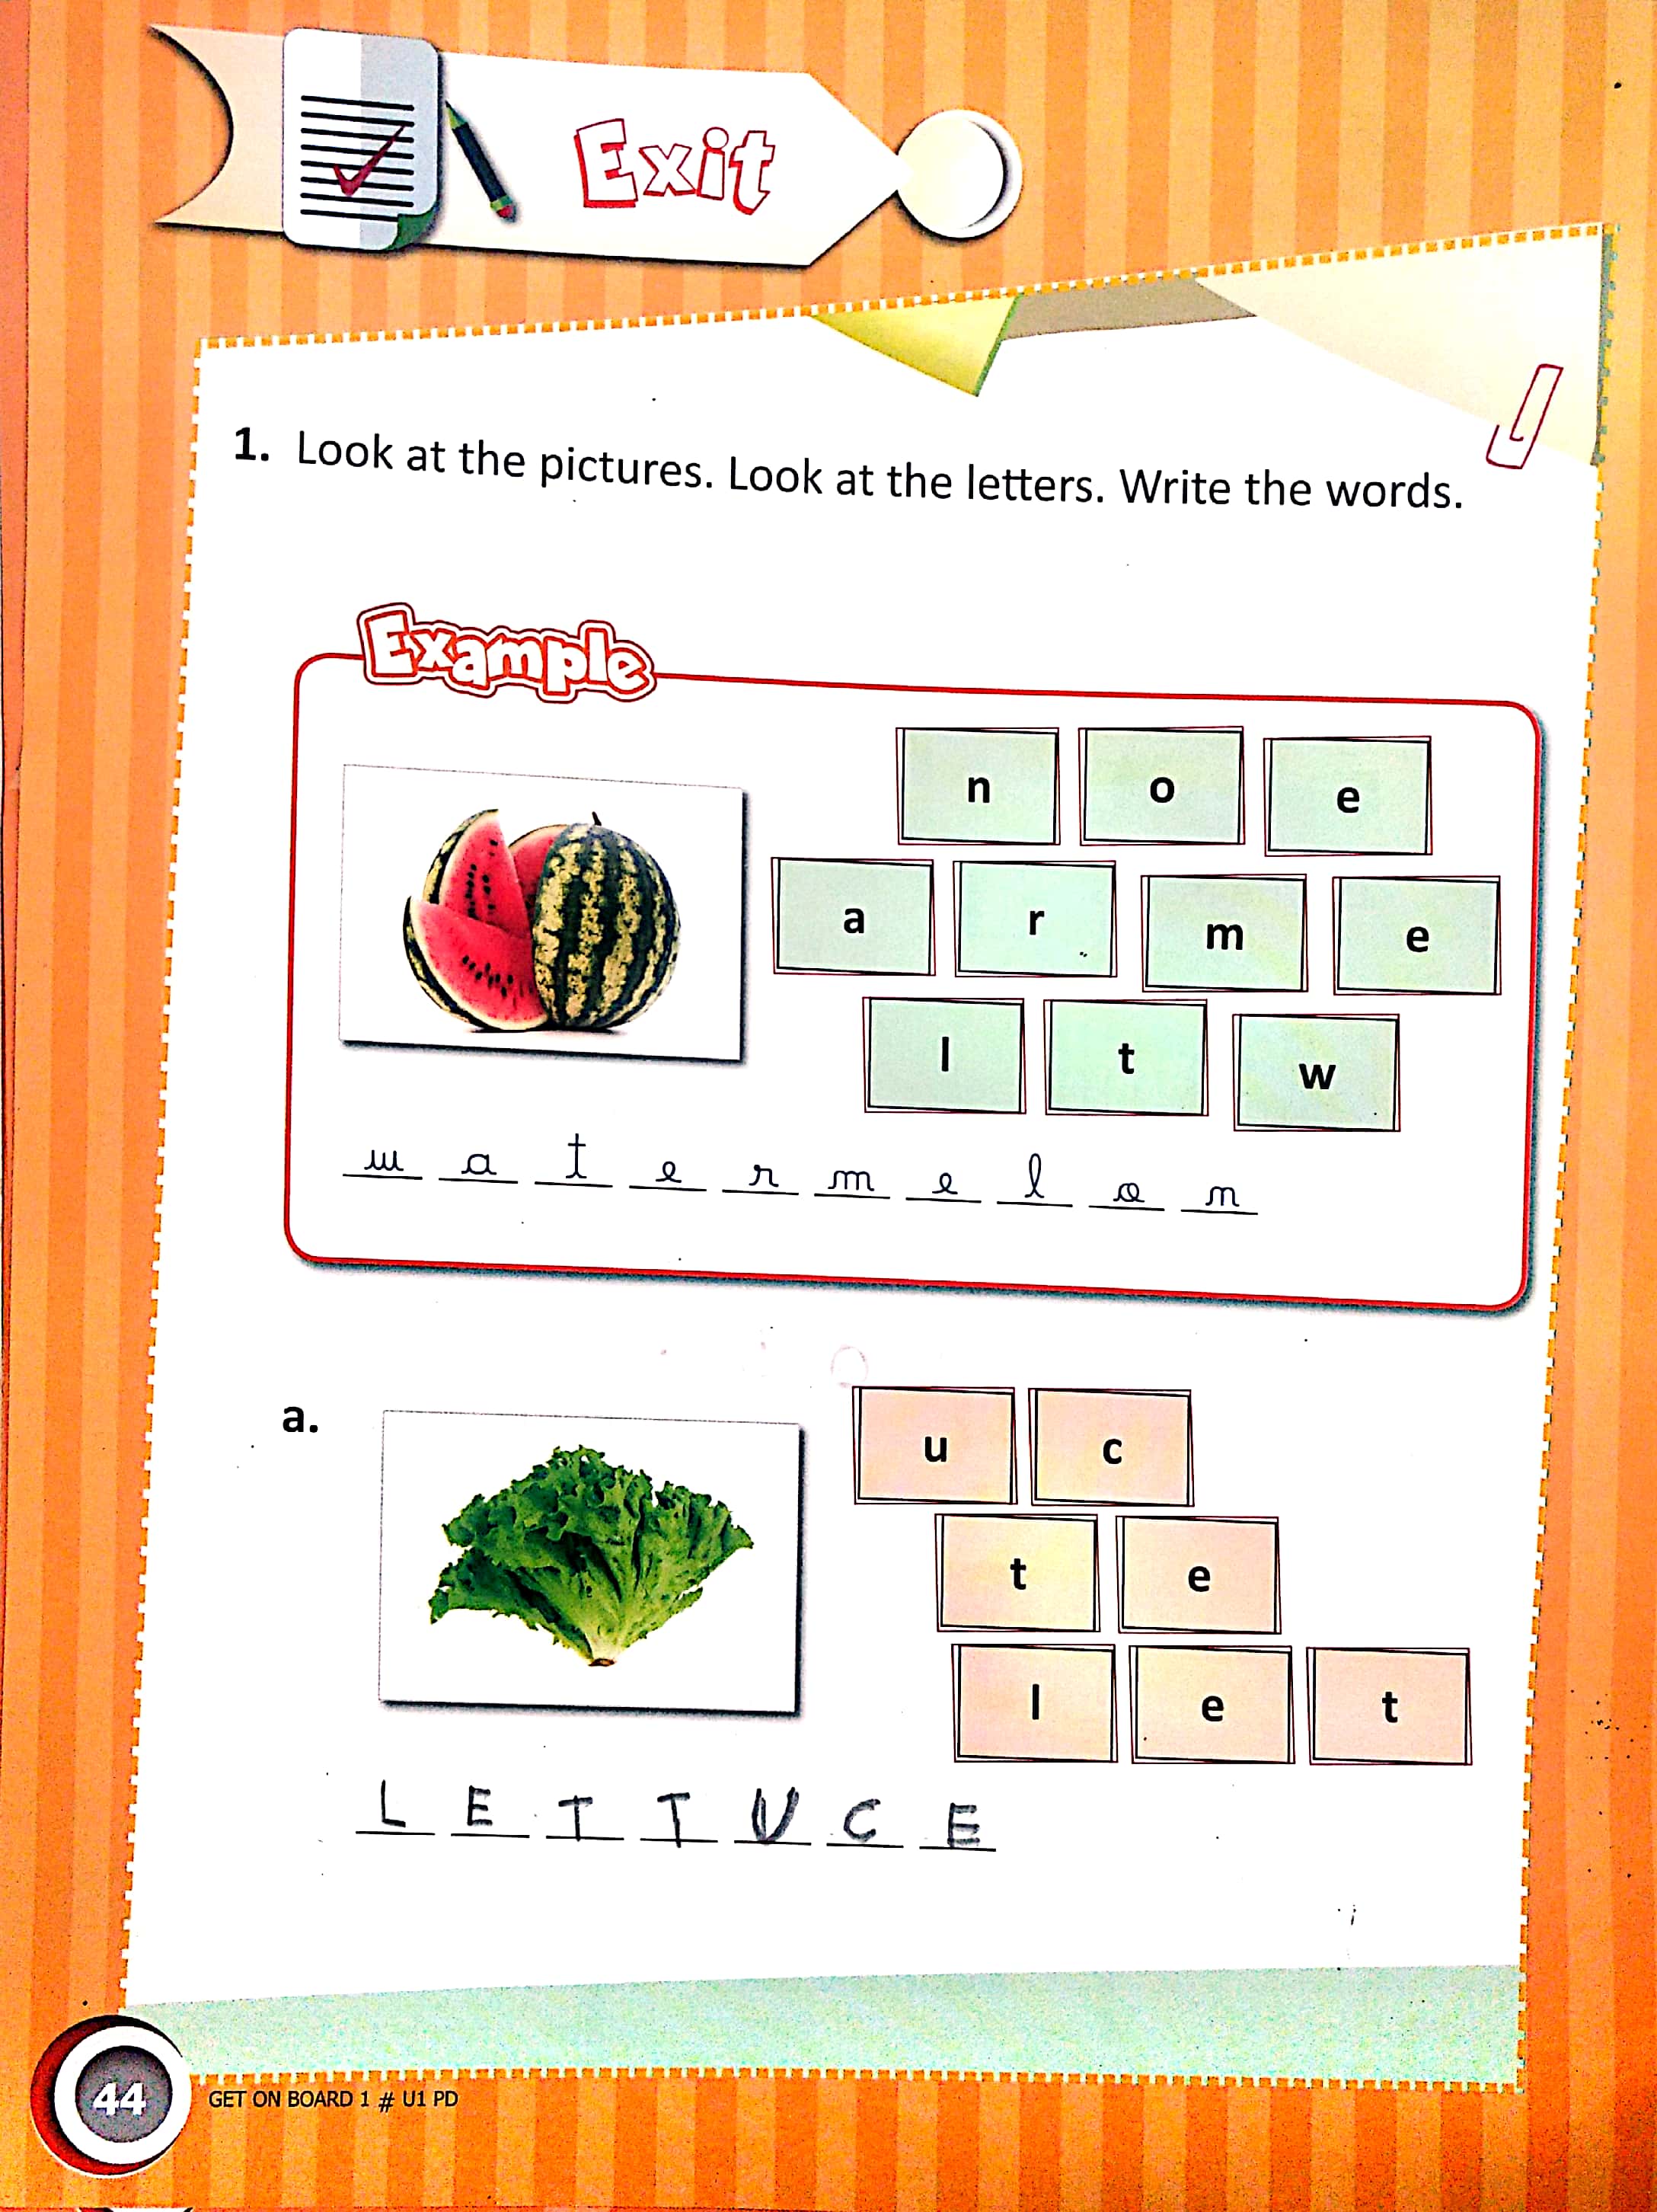 Exit
1. Look at the pictures. Look at the letters. Write the words.
Example
n o e
a r m e
l t w
w a t e r m e l o n
a.
u c
t e
l e t
L E T T U C E
44
GET ON BOARD 1 # U1 PD